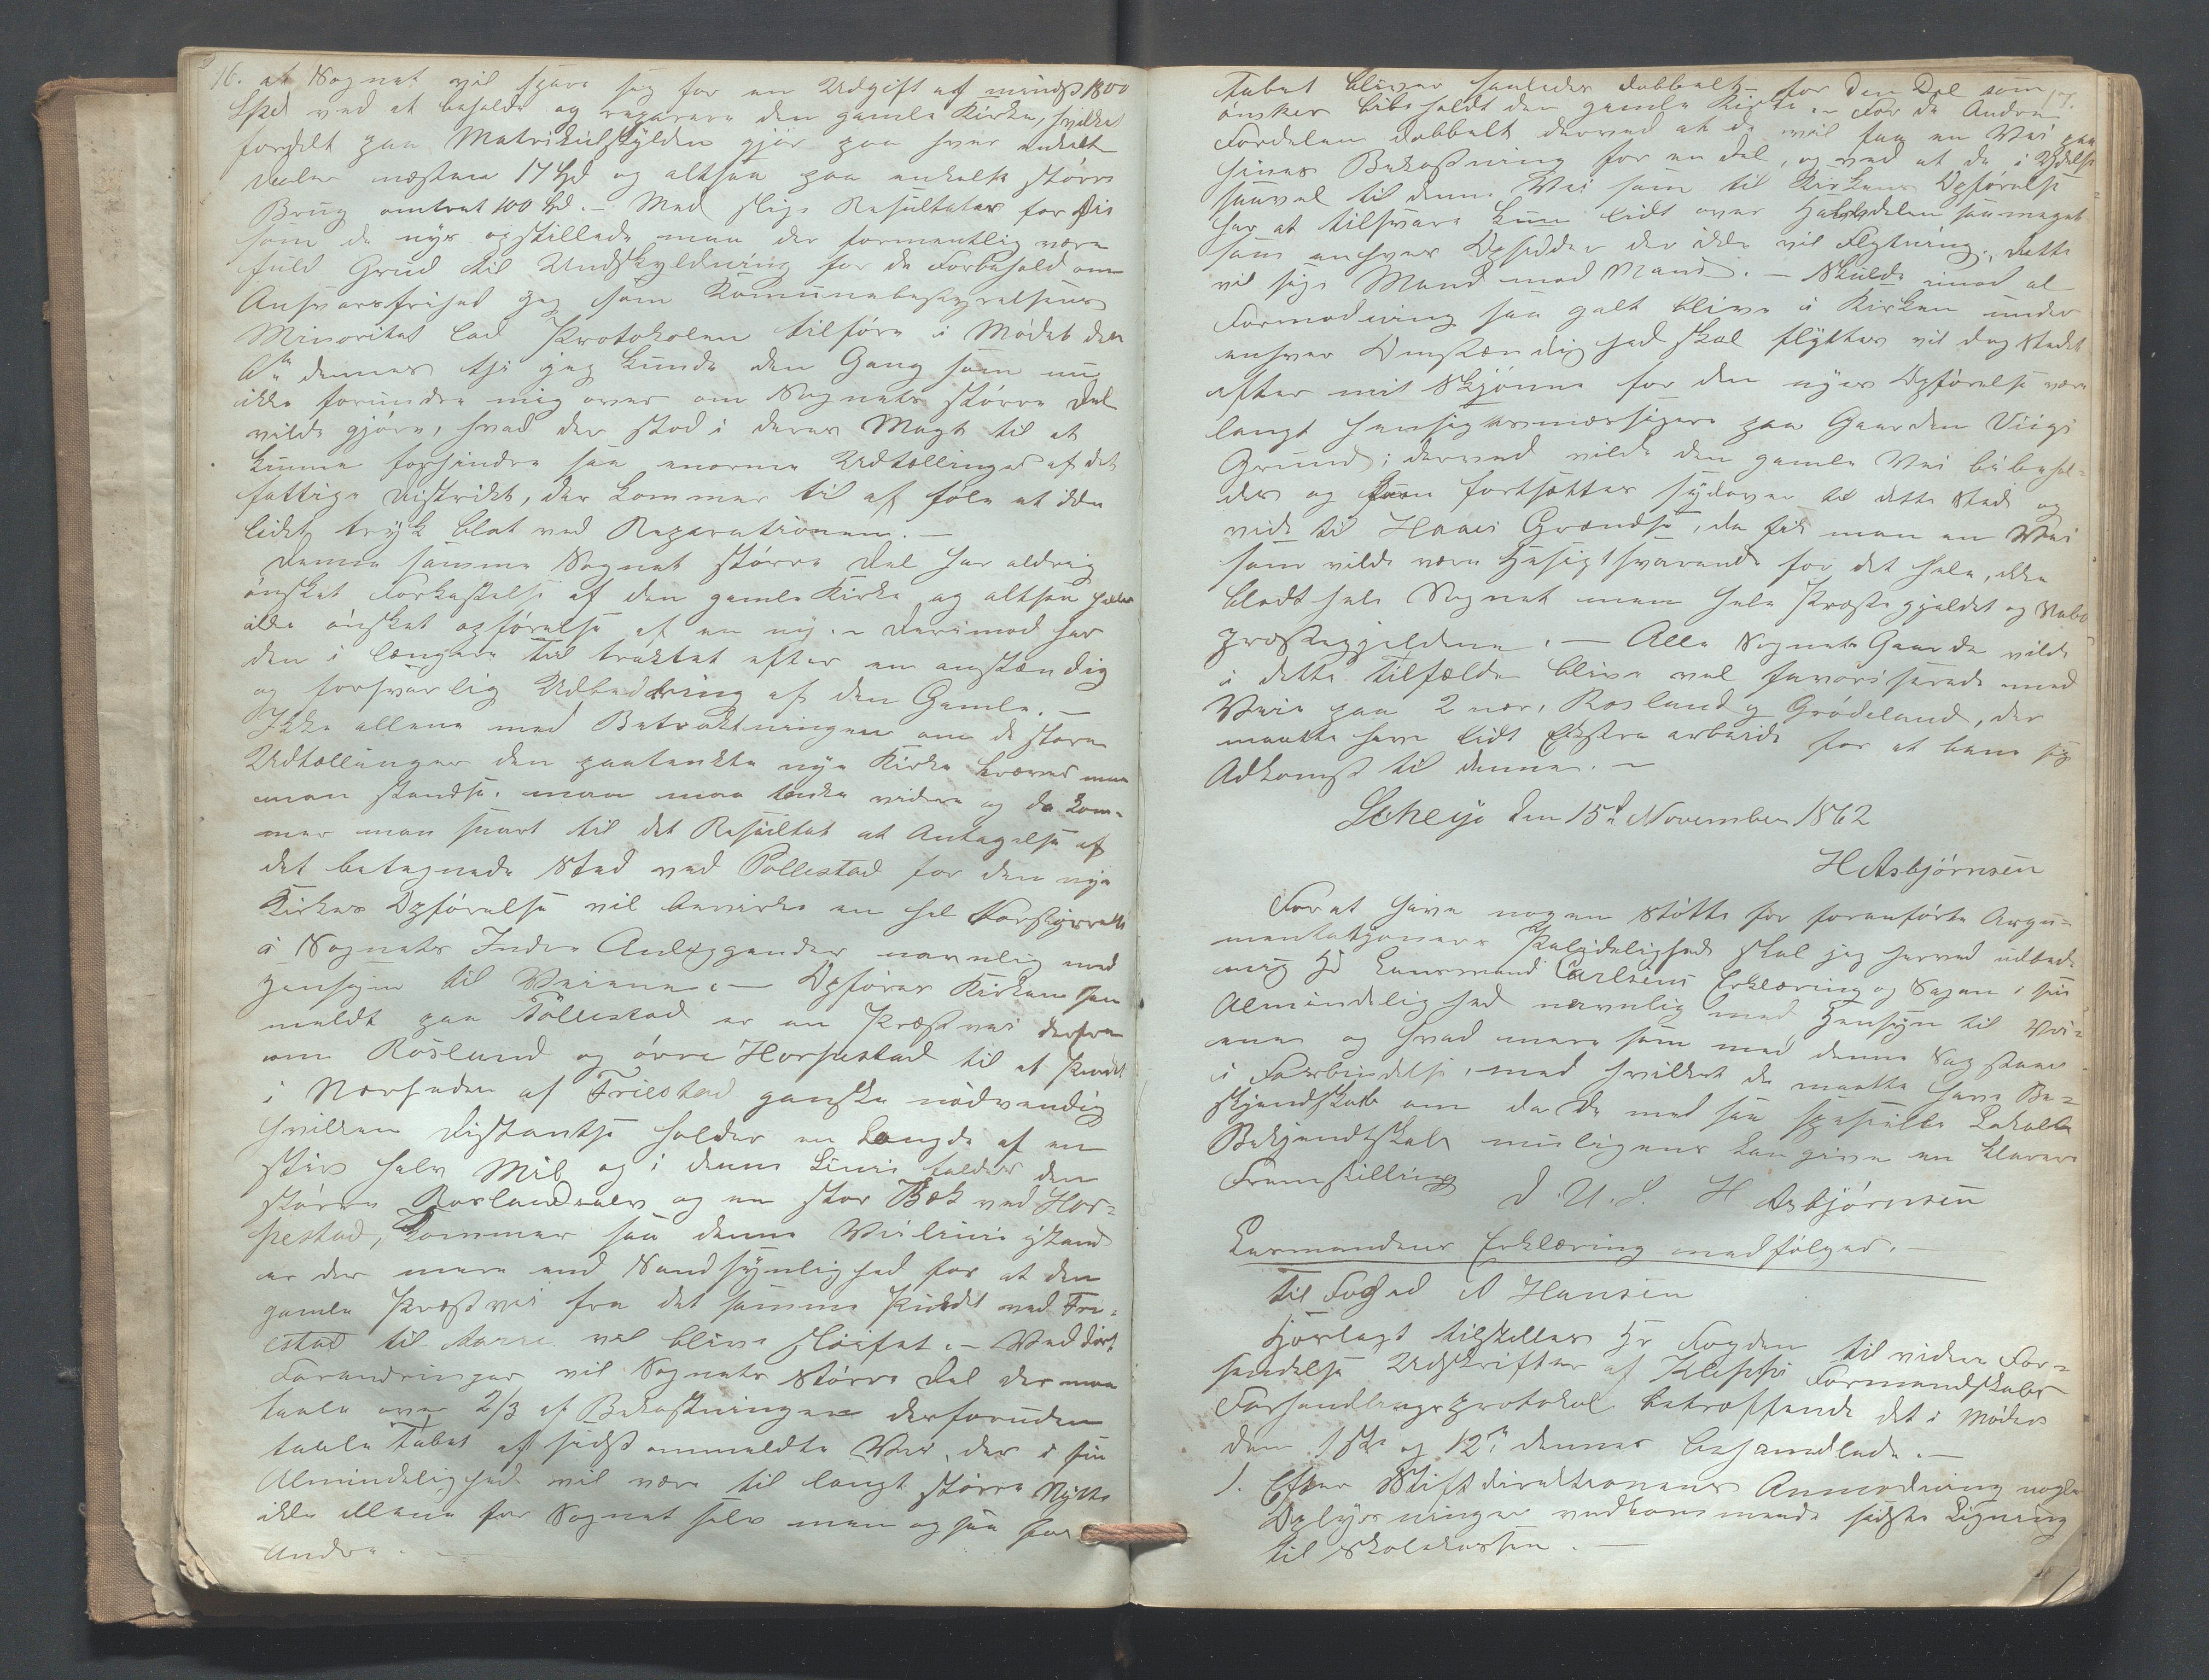 16. at Sognet vil spare sig for en Udgift af mindst 1800
Spd ved at beholde og reparere den gamle Kirke, hvilket
fordelt paa Matrikulskylden gjør paa hver enkelt
Daler næsten 17 Spd og altsaa paa enkelte større
Brug omtrent 100 Spd. – Med slige Resultater for Øie
som de nys opstillede maa der formentlig være
fuld Grund til Undskyldning for de Forbehold om
Ansvarsfrihed jeg som Komunebestyrelsens
Minoritet lod Protokolen tilføre i Mødet den
dennes thi jeg kunde den Gang som nu
ikke forundre mig over om Sognets større Del
vilde gjøre, hvad der stod i deres Magt til at
kunne forhindre saa enorme Udtællinger af det
fattige Distrikt, der kommer til at føle et ikke
lidet tryk blot ved Reparationen. –
Denne samme Sognets større Del har aldrig
ønsket Forkastelse af den gamle Kirke og altsaa heller
ikke ønsket opførelse af en ny. – Derimod har
den i længere tid traktet efter en anstændig
og forsvarlig Udbedring af den Gamle. –
Ikke allene med Betraktningen om de store
Udtællinger den paatenkte nye Kirke kræver maa
man standse. man maa tænke videre og da kom-
mer man snart til det Resultat at Antagelse af
det betegnede Sted ved Pollestad for den nye
Kirkes Opførelse vil bevirke en hel Forstyrrelse
i Sognets Indre Anliggender navnlig med
Hensyn til Veiene. – Opføres Kirken som
meldt paa Pollestad er en Præstvei derfra
om Rosland og øvre Horpestad til et Punkt
i Nærheden af Friestad ganske nødvendig
hvilken Distantse holder en Længde af en
stiv halv Mil og i denne Linie falder den
større Roslandselv og en stor Bæk ved Hor-
pestad, kommer saa denne Veilinie istand
er der mere end Sandsynlighed for at den
gamle Præstvei fra det samme Punkt ved Fri-
estad til vil blive sløifet. – Ved disse
Forandringer vil Sognets Større Del der maa
taale over 2/3 af Bekostningen desforuden
taale Tabet af sidst ommeldte Vei, der i sin
Almindelighed vil være til langt større Nytte
ikke allene for Sognet selv men ogsaa for
Andre. –
17.
Tabet bliver saaledes dobbelt for den Del som
ønsker bibeholdt den gamle Kirke. – For de Andre
Fordelen dobbelt derved at de vil faa en Vei paa
hines Bekostning for en del, og ved at de i Ydelse
saavel til denne Vei som til Kirkens Opførelse
har at tilsvare kun lidt over Halvdelen saa meget
som enhver Opsidder der ikke vil Flytning, dette
vil sige Mand mod Mand. – Skulde imod al
Formodning saa galt blive i Kirken under
enhver Omstændighed skal flyttes vil dog Stedet
efter mit Skjønne for den nyes Opførelse være
langt hensigtsmæssigere paa Gaarden Viigs
Grund; derved vilde den gamle Vei bibehol-
des og kun fortsættes sydover til dette Sted og
vide til Haaes Grændse, da fik man en Vei
som vilde være Hensigtsvarende for det hele, ikke
blodt hele Sognet men hele Præstegjeldet og Nabo
præstegjeldene. – Alle Sognets Gaarde vilde
i dette tilfælde blive vel favoriserede med
Veie paa 2 nær, Rosland og Grødeland, der
maatte have lidt Ekstra arbeide for at bane sig
Adkomst til denne. –
Scheije den 15d November 1862
H Asbjørnsen
For at have nogen Støtte for foranførte Argu-
mentationers Paalidelighed skal jeg herved udbede
mig Hr Lensmand Carlsens Erklæring og Sagen i sin
Almindelighed navnlig med Hensyn til Vei-
ene og hvad mere som med denne Sag staar
i Forbindelse, med hvilket de maatte have Be-
skjendskab om da De med saa spesielle Lokale
Bekjendtskab muligens kan give en klarere
Fremstilling
D. U. S. H Asbjørnsen
Lensmandens Erklæring medfølger. –
til Foged A Hansen
Hjoslagt tilstilles Hr Fogden til videre For-
sendelse Udskrifter af Kleps Formandskabs
Forhandlingsprotokol betræffende det i Møder
den 1ste og 12te dennes behandlede. –
1. Efter Stiftdirektionens Anmodning nogle
Oplysninger vedkommende sidste Ligning
til Skolekassen. –